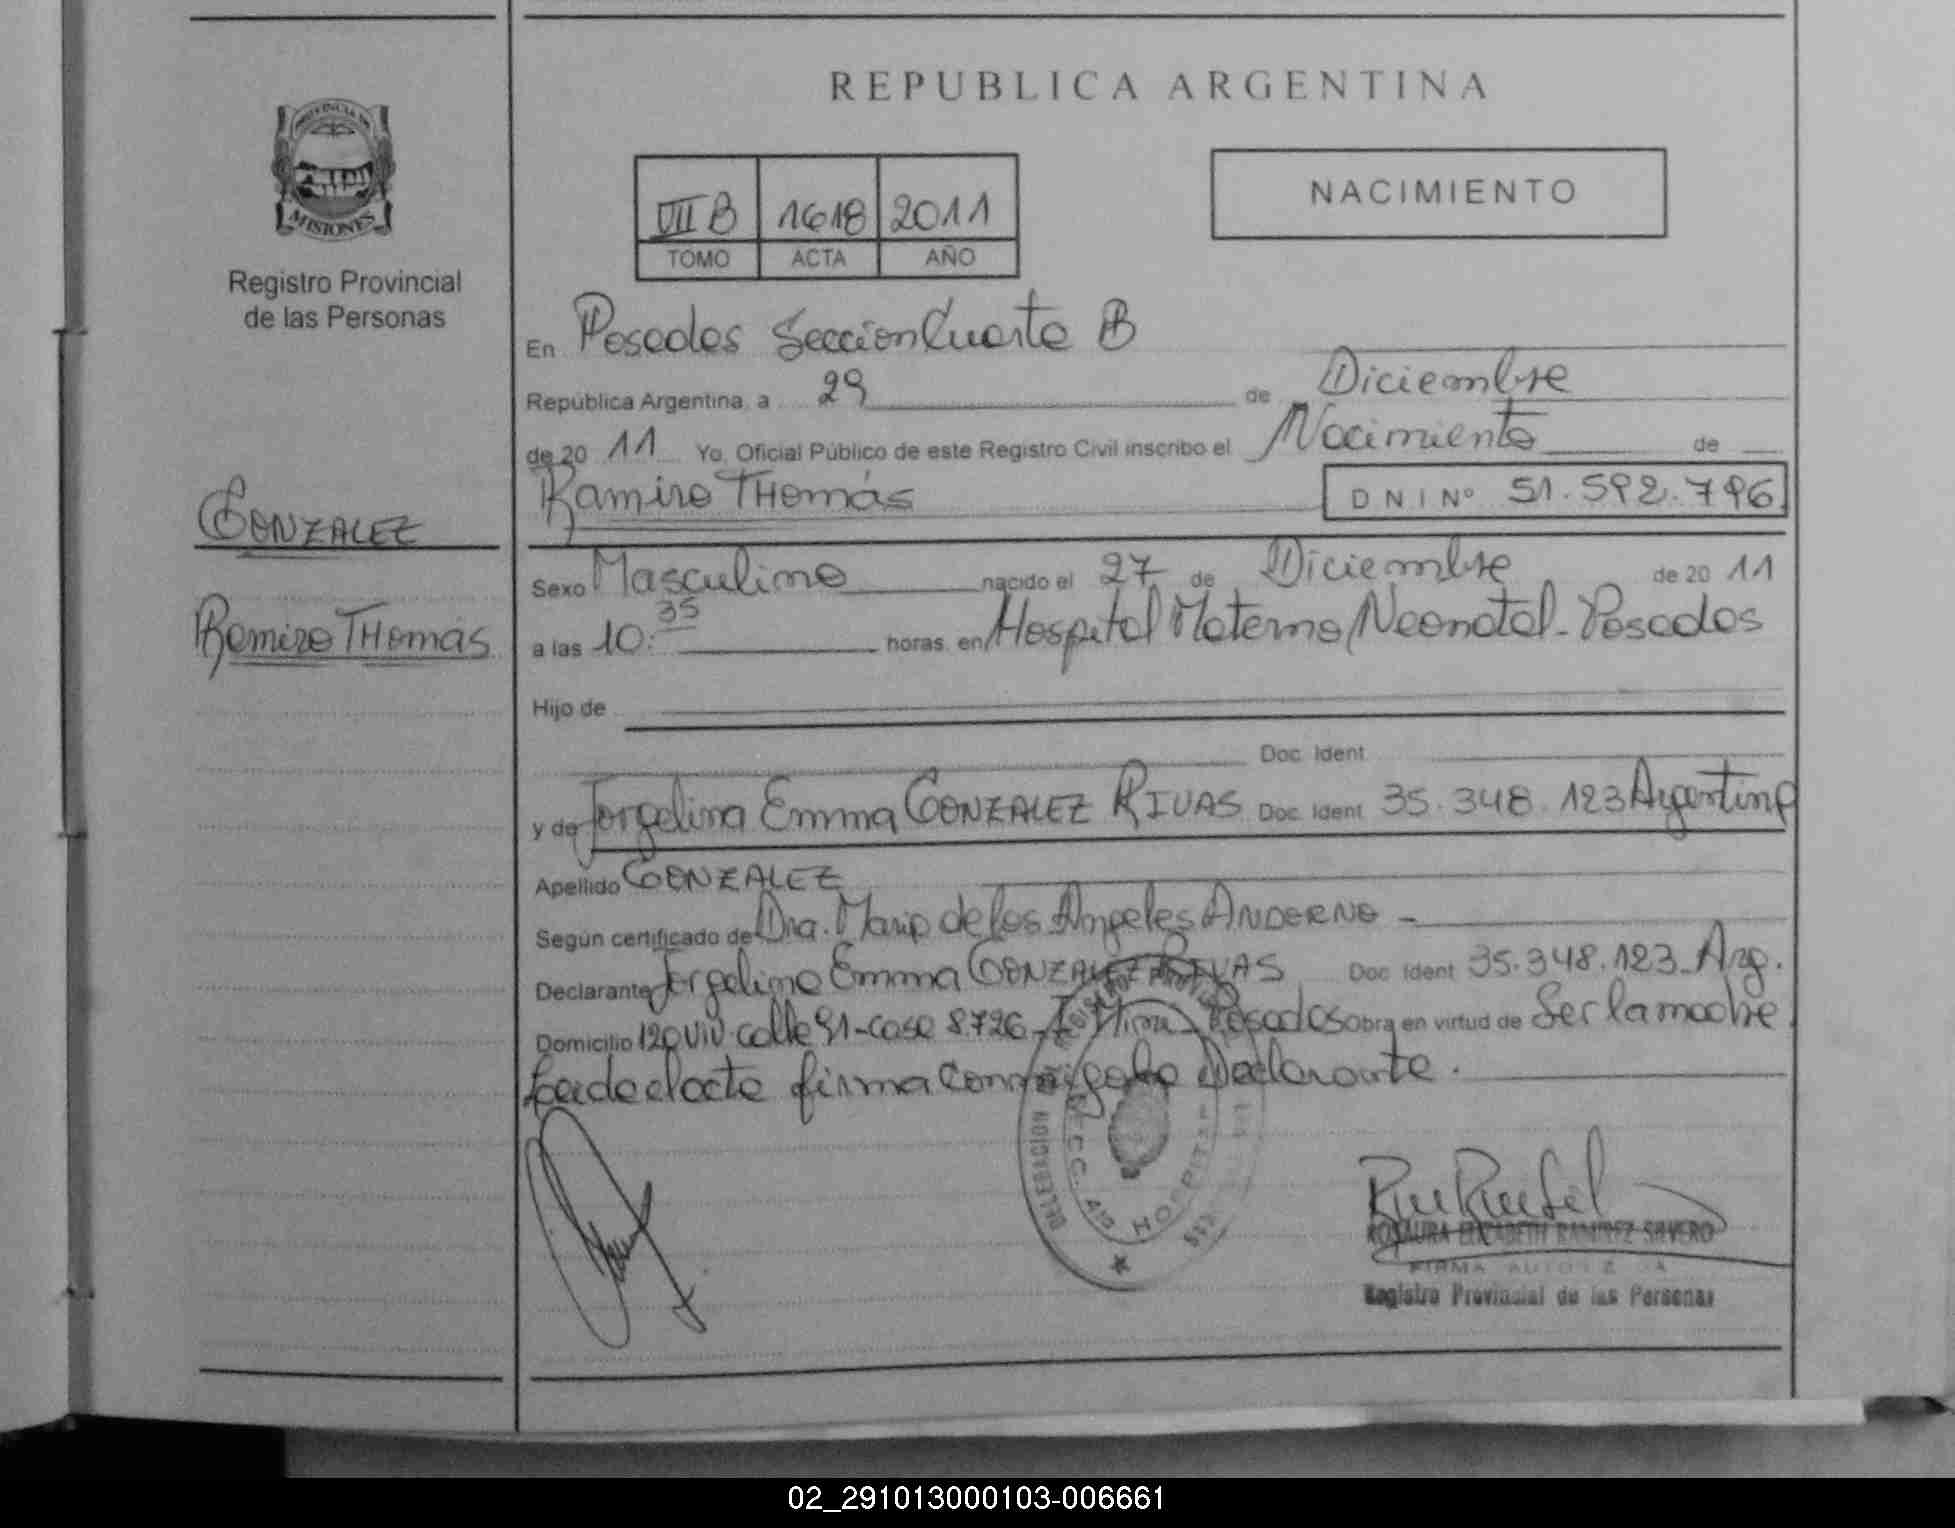 REPUBLICA ARGENTINA
PROVINCIA DE
MISIONES
Registro Provincial
de las Personas
VII B 1618 2011
TOMO ACTA AÑO
NACIMIENTO
En Posadas Seccion Cuarta B
Republica Argentina, a 29 de Diciembre
de 20 11 Yo, Oficial Público de este Registro Civil inscribo el Nacimiento de
Ramiro THomás
D N I Nº 51.592.796
GONZALEZ
Ramiro THomás
Sexo Masculino nacido el 27 de Diciembre de 20 11
a las 10:35 horas, en Hospital Materno Neonatal - Posadas
Hijo de
Doc. Ident.
y de Jorgelina Emma GONZALEZ RIVAS Doc. Ident. 35.348.123 Argentina
Apellido GONZALEZ
Según certificado de Dra. Maria de los Angeles ANDERNO -
Declarante Jorgelina Emma GONZALEZ RIVAS Doc. Ident. 35.348.123 Arg.
Domicilio 120 Viv. calle 91 - casa 8726 - Posadas Obra en virtud de Ser la madre.
Leida el acta firma Declarante.
DELEGACION
SECC. 4ta
HOSPITAL
ROSAURA ELIZABETH RAMIREZ SILVERO
FIRMA AUTORIZADA
Registro Provincial de las Personas
02_291013000103-006661